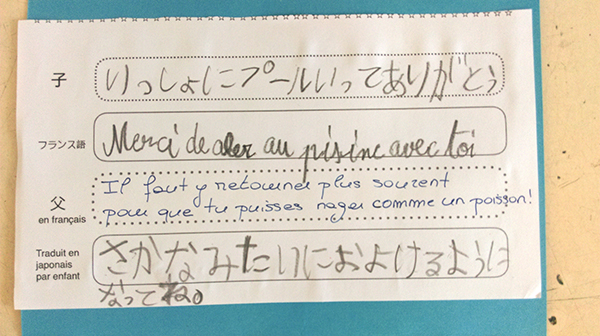 子
いっしょにプールいってありがとう
フランス語
Merci de aler au pisine avec toi
父
en français
Il faut y retourner plus souvent
pour que tu puisses nager comme un poisson!
Traduit en
japonais
par enfant
さかなみたいにおよけるように
なってね。